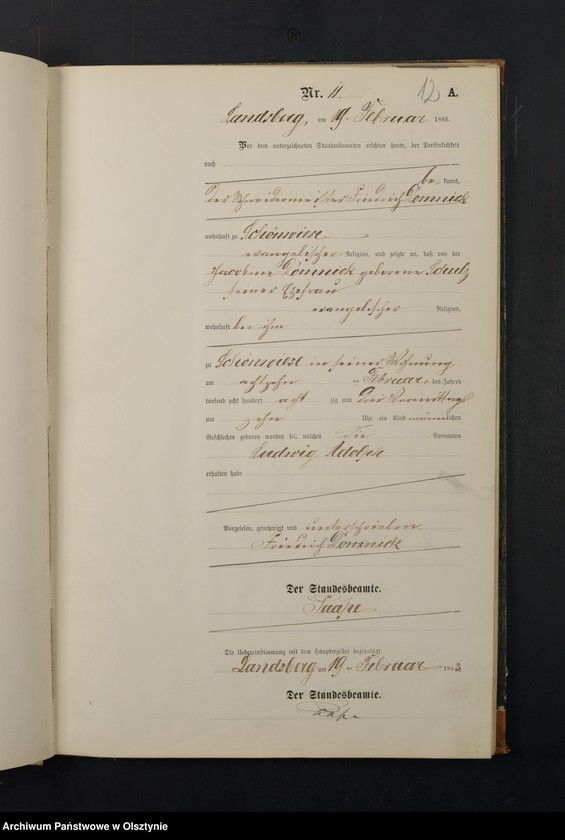 Nr. 11.
12 A.
Landsberg, am 19. Februar 1883.
Vor dem unterzeichneten Standesbeamten erschien heute, der Persönlichkeit
nach
be kannt,
der Schneidermeister Friedrich Dömnick
wohnhaft zu Schönwiese
evangelischer Religion, und zeigte an, daß von der
Jacobine Dömnick geborene Schulz
seiner Ehefrau
evangelischer Religion,
wohnhaft bei ihm
zu Schönwiese in seiner Wohnung
am achtzehn ten Februar des Jahres
tausend acht hundert acht zig und drei Vormittags
um zehn Uhr ein Kind männlichen
Geschlechts geboren worden sei, welches die Vornamen
Ludwig Adolph
erhalten habe
Vorgelesen, genehmigt und unterschrieben.
Friedrich Dömnick
Der Standesbeamte.
Die Uebereinstimmung mit dem Hauptregister beglaubigt.
Landsberg am 19 ten Februar 1883
Der Standesbeamte.
Archiwum Państwowe w Olsztynie